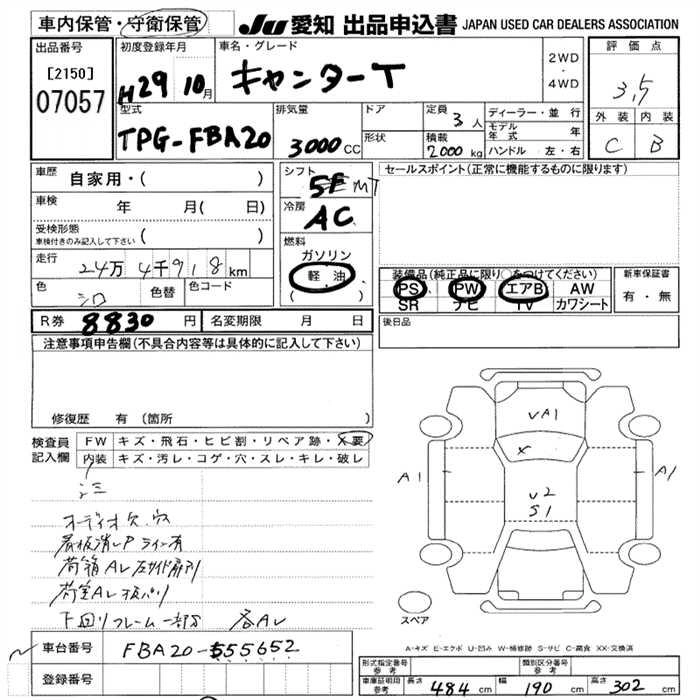 車内保管・守衛保管 JU 愛知 出品申込書 JAPAN USED CAR DEALERS ASSOCIATION
出品番号 [2150] 07057
初度登録年月 H29 10月
車名・グレード キャンターT
2WD・4WD
評価点 3.5
外装 C 内装 B
型式 TPG-FBA20
排気量 3000cc
ドア
形状
定員 3人
積載 2000kg
ディーラー・並行
モデル年式 年
ハンドル 左・右
車歴 自家用・( )
車検 年 月( 日)
受検形態 ( )
車検付きのみ記入して下さい
走行 24万4千918km
色 シロ 色替 色コード
シフト 5F MT
冷房 AC
燃料 ガソリン 軽油 ( )
セールスポイント(正常に機能するものに限ります)
装備品(純正品に限り○をつけてください)
PS PW エアB AW
SR ナビ TV カワシート
新車保証書 有・無
R券 8830円 名変期限 月 日
後日品
注意事項申告欄(不具合内容等は具体的に記入して下さい)
修復歴 有(箇所 )
検査員記入欄
FW キズ・飛石・ヒビ割・リペア跡・X要
内装 キズ・汚レ・コゲ・穴・スレ・キレ・破レ
シミ
オーディオ欠、穴
看板消しP ライン有
荷箱AL
荷室AL
下回りフレーム一部サビ 各AL
VA1
X
A1
U2
S1
A1
スペア
A-キズ E-エクボ U-凹み W-補修跡 S-サビ C-腐食 XX-交換済
車台番号 FBA20-555652
登録番号
形式指定番号 参考 類別区分番号 参考
車庫証明用 参考 長さ 484cm 幅 190cm 高さ 302cm